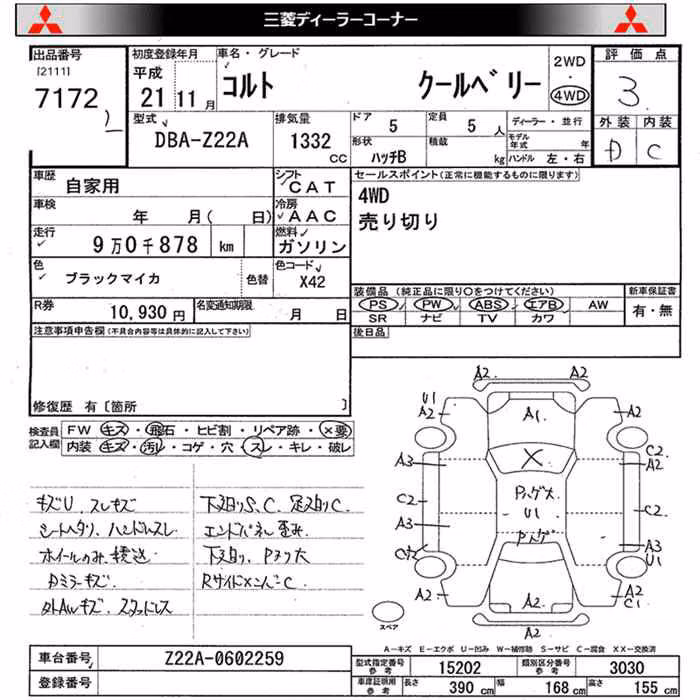 三菱ディーラーコーナー
出品番号
[2111]
7172
初度登録年月
平成
21 11月
車名・グレード
コルト クールベリー
2WD
・
4WD
評価点
3
外装 内装
D C
型式
DBA-Z22A
排気量
1332
CC
ドア
5
定員
5人
ディーラー・並行
形状
ハッチB
積載
kg
モデル年式 年
ハンドル 左・右
車歴
自家用
シフト
CAT
車検
年 月( 日)
冷房
AAC
走行
9万0千878 km
燃料
ガソリン
色
ブラックマイカ
色替
色コード
X42
R券
10,930円
名変通知期限
月 日
セールスポイント(正常に機能するものに限ります)
4WD
売り切り
装備品(純正品に限り〇をつけてください)
新車保証書
PS PW ABS エアB AW
SR ナビ TV カワ
有・無
後日品
注意事項申告欄(不具合内容等は具体的に記入して下さい)
修復歴 有〔箇所 〕
検査員記入欄
FW キズ・飛石・ヒビ割・リペア跡・×要
内装 キズ・汚レ・コゲ・穴・スレ・キレ・破レ
キズU、スレキズ
シートヘタリ、ハンドルスレ
Dミラーキズ
外AWキズ、スタッドレス
下廻りS、C、足廻りC
エンドパネル歪み
A2 A2
U1
A2 A1 A2
C2
A3 X A2
C2 U1 C2
A3
A3
U1
A2 A2 A2
C1
A2
スペア
A−キズ E−エクボ U−凹み W−補修跡 S−サビ C−腐食 XX−交換済
車台番号
Z22A-0602259
登録番号
型式指定番号
参考
15202
類別区分番号
参考
3030
車庫証明用
参考
長さ 390 cm 幅 168 cm 高さ 155 cm